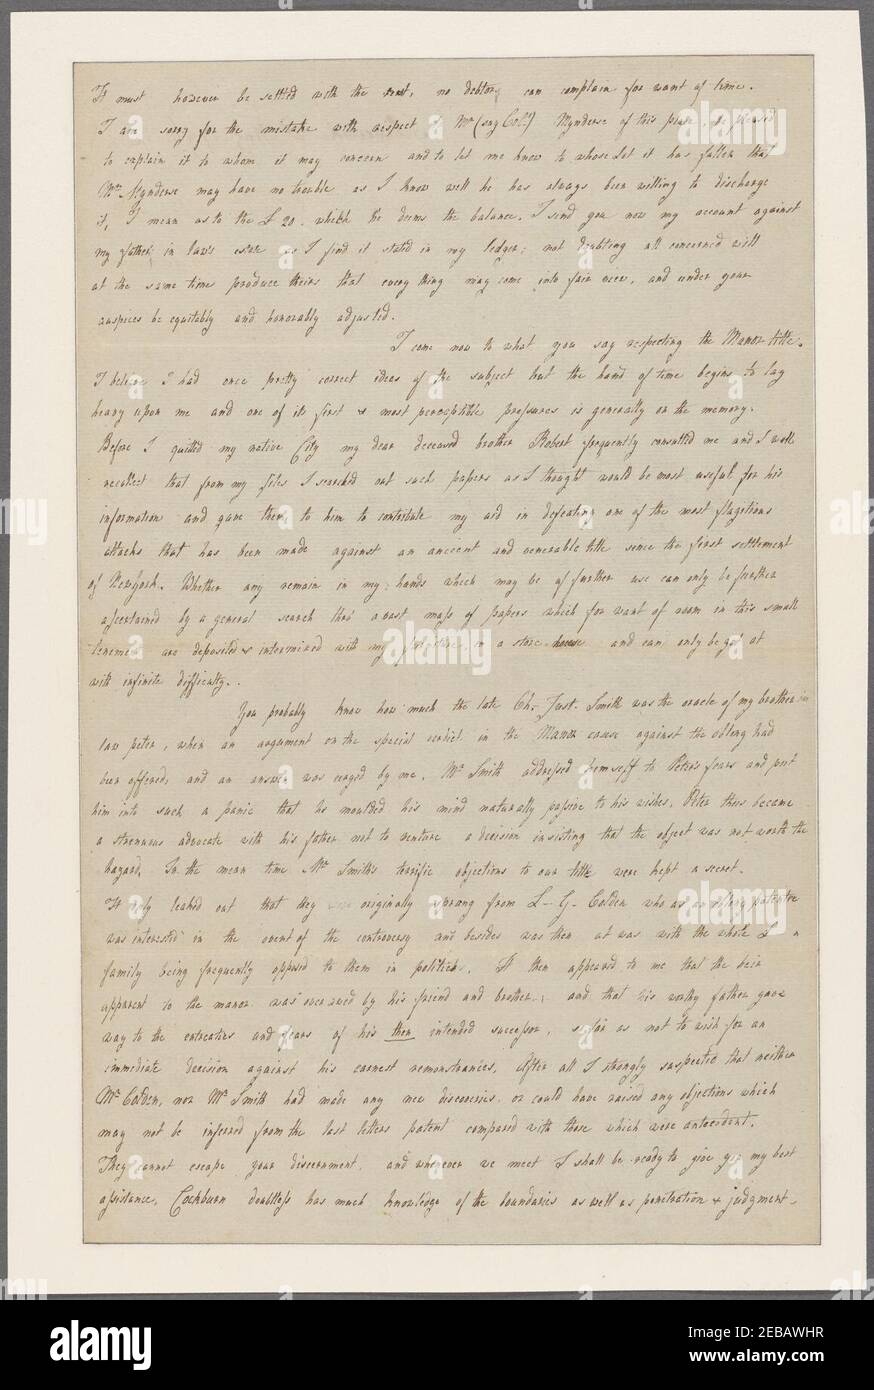 It must however be settled with the rest, no debtor can complain for want of time.
I am sorry for the mistake with respect to Mr (say Coll) Mynderse of this place, be pleased
to explain it to whom it may concern and to let me know to whose lot it has fallen that
Mr. Mynderse may have no trouble as I know well he has always been willing to discharge
it, I mean as to the £ 20. which he deems the balance. I send you now my account against
my father in law's estate as I find it stated in my ledger; not doubting all concerned will
at the same time produce theirs that every thing may come into fair view, and under your
auspices be equitably and honorably adjusted.
I come now to what you say respecting the Manor title.
I believe I had once pretty correct ideas of the subject but the hand of time begins to lay
heavy upon me and one of its first & most perceptible pressures is generally on the memory.
Before I quitted my native City my dear deceased brother Robert frequently consulted me and I well
recollect that from my files I searched out such papers as I thought would be most useful for his
information and gave them to him to contribute my aid in defeating one of the most flagitious
attacks that has been made against an ancient and venerable title since the first settlement
of New York. Whether any remain in my hands which may be of further use can only be further
ascertained by a general search thro' a vast mass of papers which for want of room in this small
tenement are deposited & intermixed with my furniture in a store house and can only be got at
with infinite difficulty.
You probably know how much the late Ch. Just. Smith was the oracle of my brother in
law peter, when an argument on the special verdict in the Manor cause against the oblong had
been offered, and an answer was urged by me. Mr Smith addressed himself to Peter's fears and put
him into such a panic that he moulded his mind naturally passive to his wishes. Peter thus became
a strenuous advocate with his father not to venture a decision insisting that the object was not worth the
hazard. In the mean time Mr Smith's terrific objections to our title were kept a secret.
It only leaked out that they originally sprang from L- G- Colden who as an oblong patentee
was interested in the event of the controversy and besides was then at war with the whole L n
family being frequently opposed to them in politics. It then appeared to me that the heir
apparent to the manor was overawed by his friend and brother; and that his worthy father gave
way to the entreaties and fears of his then intended successor, so far as not to wish for an
immediate decision against his earnest remonstrances. After all I strongly suspected that neither
Mr Colden, nor Mr Smith had made any new discoveries or could have raised any objections which
may not be inferred from the last letters patent compared with those which were antecedent.
They cannot escape your discernment, and whenever we meet I shall be ready to give you my best
assistance. Cockburn doubtless has much knowledge of the boundaries as well as penetration & judgment -
alamy
Image ID: 2EBAWHR
www.alamy.com